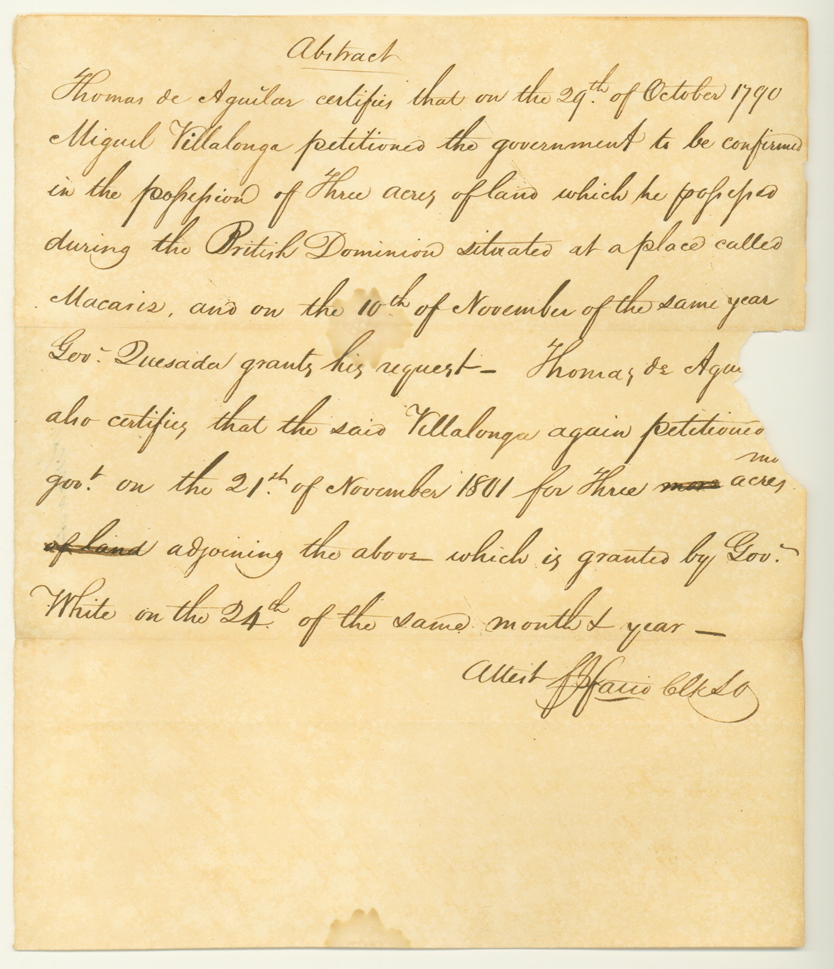 Abstract
Thomas de Aguilar certifies that on the 29th of October 1790
Miguel Villalonga petitioned the government to be confirmed
in the possession of Three acres of land which he possessed
during the British Dominion situated at a place called
Macaris, and on the 10th of November of the same year
Govr. Quesada grants his request – Thomas de Agui
also certifies that the said Villalonga again petitioned
mo
govt. on the 21st. of November 1801 for Three more acres
of land adjoining the above which is granted by Govr.
White on the 24th of the same month & year –
Attest Fatio Clk